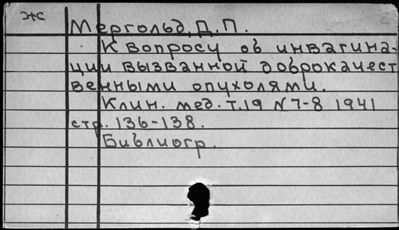 жс
Мергольд, Д.П.
К вопросу об инвагина-
ции вызванной доброкачест
венными опухолями.
Клин. мед. т.19 N7-8 1941
стр. 136-138.
Библиогр.